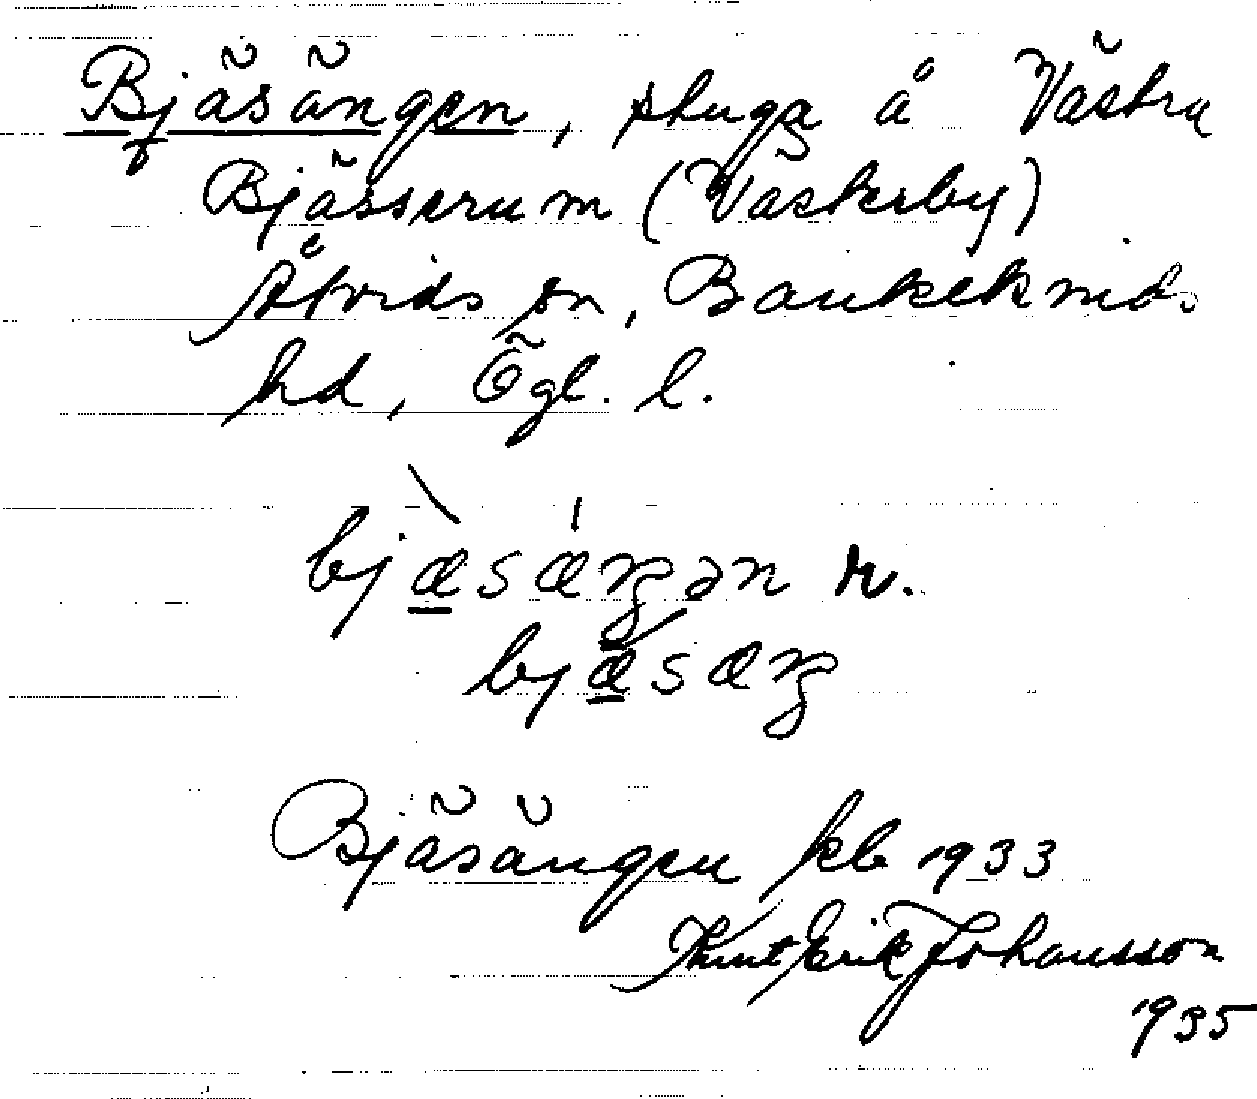 Bjäsängen, stuga å Västra
Bjässerum (Västerby)
Åtvids sn, Bankekinds
hd, Ögl. l.
bjæ̀sǽŋən r.
bjǽsæŋ
Bjäsängen kb 1933
Knut Erik Johansson
1935